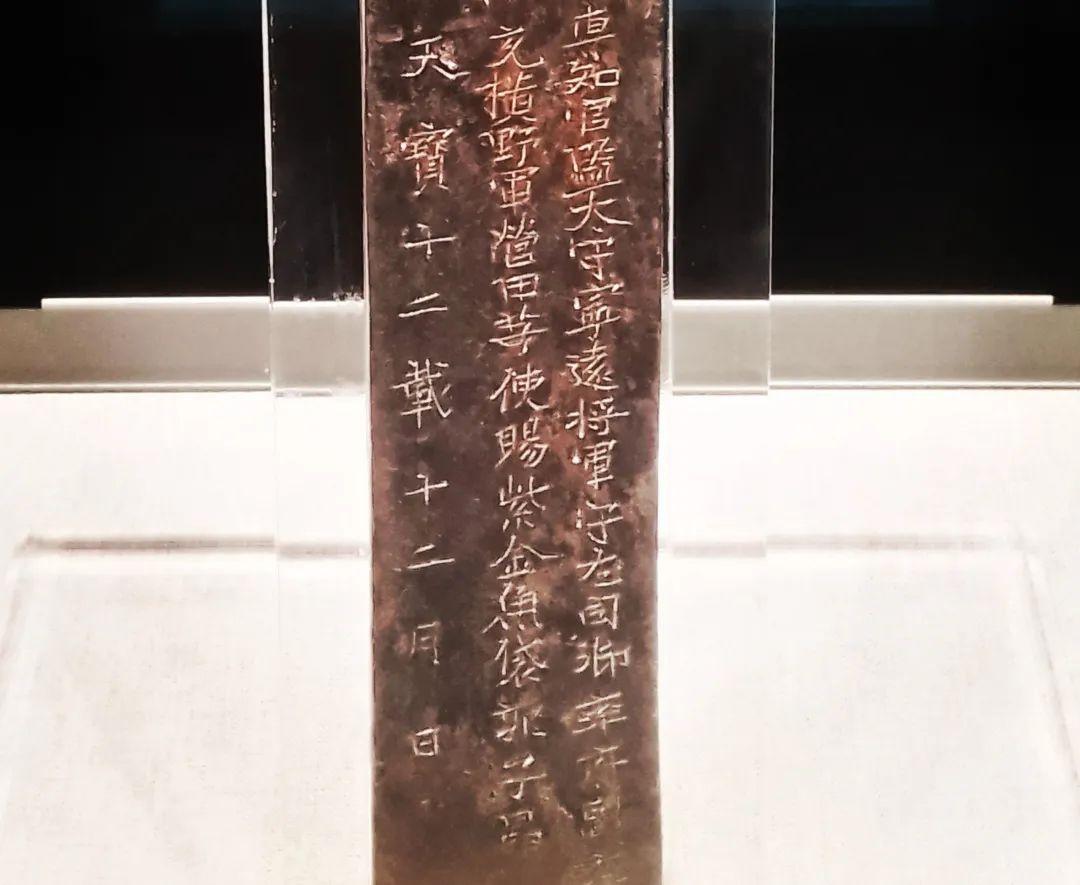 知官監太守寧遠将軍守左司御率府副率
充横野軍營田等使賜紫金魚袋郭子昂
天寶十二載十二月日